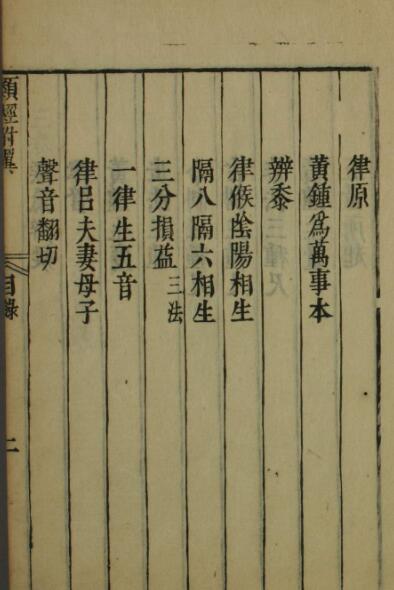 律原
黃鍾爲萬事本
辨黍
律候陰陽相生
隔八隔六相生
三分損益三法
一律生五音
律呂夫妻母子
聲音翻切
類經附翼
目錄
二